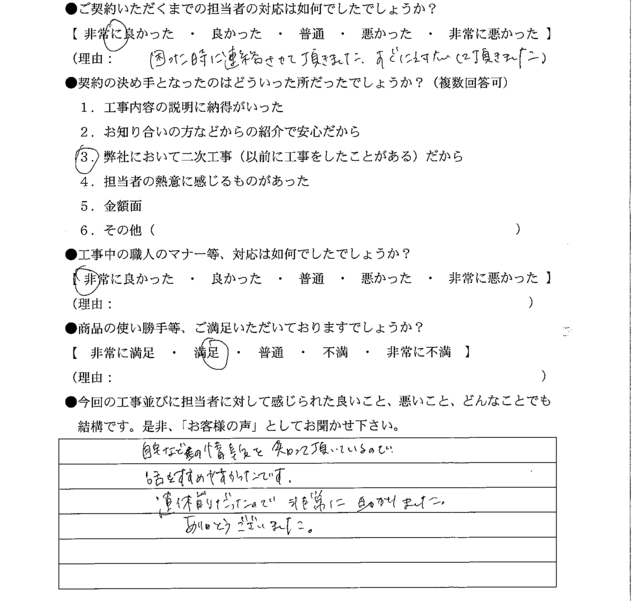 ●ご契約いただくまでの担当者の対応は如何でしたでしょうか？
【 非常に良かった ・ 良かった ・ 普通 ・ 悪かった ・ 非常に悪かった 】
（理由： 困った時に連絡させて頂きました、 頂きました）
●契約の決め手となったのはどういった所だったでしょうか？（複数回答可）
１．工事内容の説明に納得がいった
２．お知り合いの方などからの紹介で安心だから
３．弊社において二次工事（以前に工事をしたことがある）だから
４．担当者の熱意に感じるものがあった
５．金額面
６．その他（ ）
●工事中の職人のマナー等、対応は如何でしたでしょうか？
【 非常に良かった ・ 良かった ・ 普通 ・ 悪かった ・ 非常に悪かった 】
（理由： ）
●商品の使い勝手等、ご満足いただいておりますでしょうか？
【 非常に満足 ・ 満足 ・ 普通 ・ 不満 ・ 非常に不満 】
（理由： ）
●今回の工事並びに担当者に対して感じられた良いこと、悪いこと、どんなことでも
結構です。是非、「お客様の声」としてお聞かせ下さい。
など 知って頂いているので
話をすすめやすかったです。
連休前だったので 非常に 助かりました。
ありがとうございました。